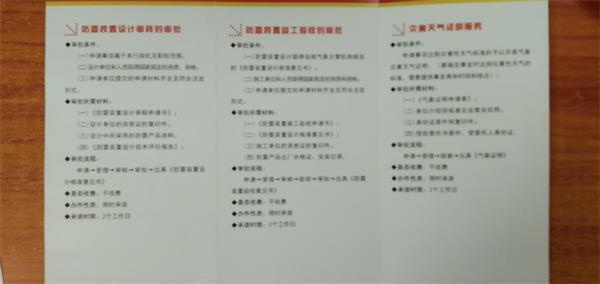 防雷装置设计审核的审批
◆审批条件:
(一)申请事项属于本行政机关职权范围。
(二)设计单位和人员取得国家规定的资质、资格;
(三)申请单位提交的申请材料齐全且符合法定
形式。
◆审批所需材料:
(一)《防雷装置设计审核申请书》;
(二)设计单位的资质证的复印件。
(三)设计中所采用的防雷产品资料;
(四)《防雷装置设计技术评价报告》;
◆审批流程:
申请→受理→审核→审批→出具《防雷装置设
计核准意见书》
◆是否收费:不收费
◆办件性质:限时承诺
◆承诺时限:2个工作日
防雷装置竣工验收的审批
◆审批条件:
(一)防雷装置设计取得当地气象主管机构核发
的《防雷装置设计核准意见书》;
(二)施工单位和人员取得国家规定的资质和资格;
(三)申请单位提交的申请材料齐全且符合法定
形式。
◆审批所需材料:
(一)《防雷装置竣工验收申请书》;
(二)《防雷装置设计核准意见书》;
(三)施工单位的资质证的复印件。
(四)防雷产品出厂合格证、安装记录。
◆审批流程:
申请→受理→审核→验收→审批→出具《防雷
装置验收意见书》
◆是否收费:不收费
◆办件性质:限时承诺
◆承诺时限:2个工作日
灾害天气证明服务
◆审批条件:
申请事项达到灾害性天气标准的予以开具气象
灾害天气证明。(要确定事发时达到灾害性天气的
标准,需要提供事发具体时间和地点)。
◆审批所需材料:
(一)《气象证明申请表》;
(二)单位介绍信或者企业营业执照。
(三)身份证原件和复印件。
(四)授权委托书原件、受委托人身份证。
◆审批流程:
申请→受理→核准→出具《气象证明》
◆是否收费:不收费
◆办件性质:限时承诺
◆承诺时限:1个工作日